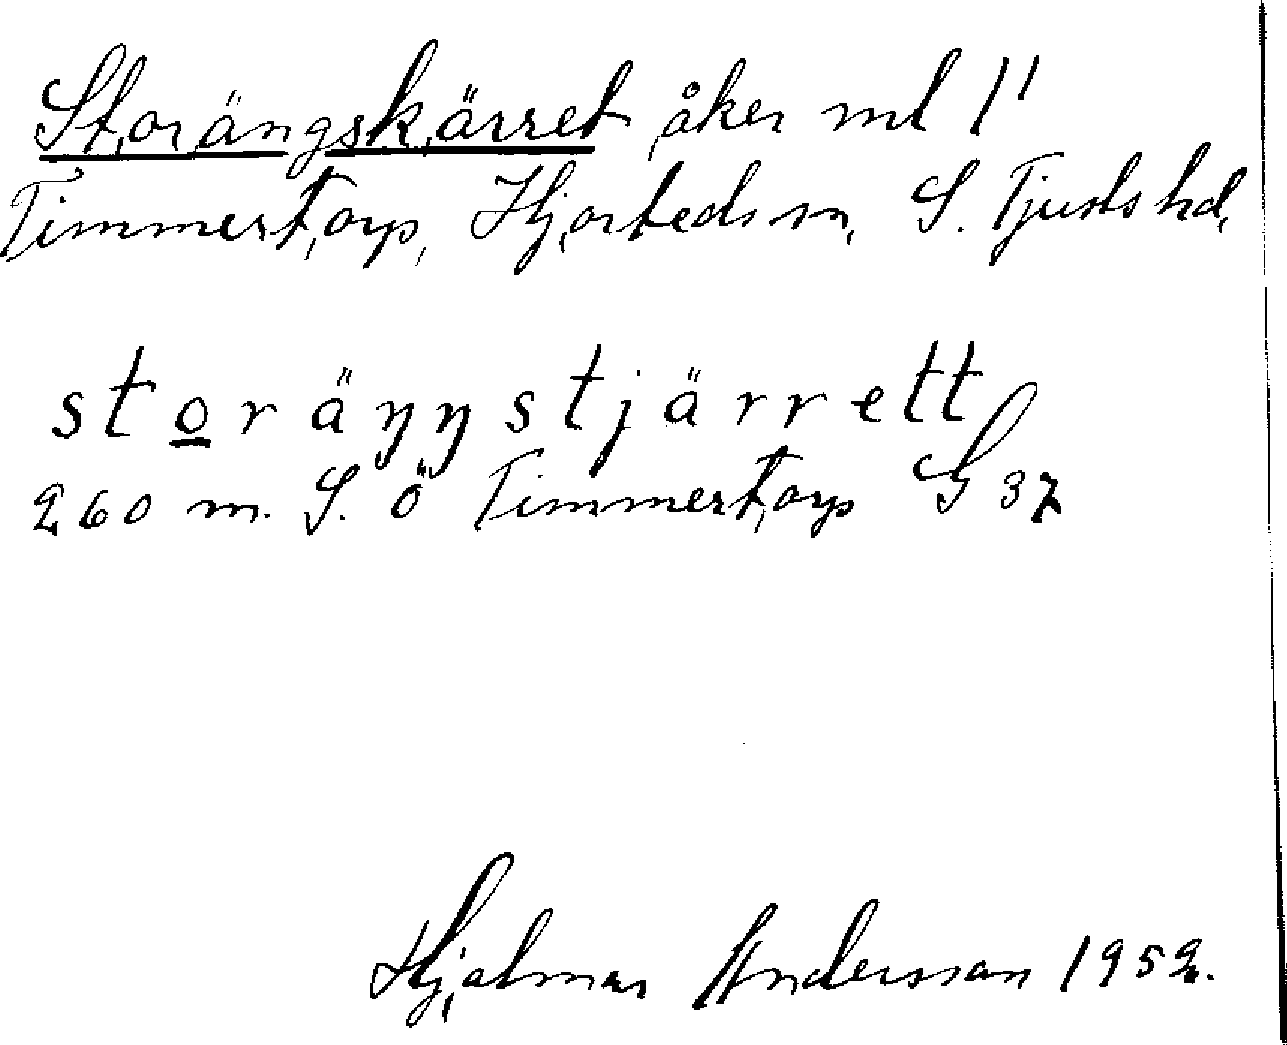 Storängskärret åker ml 1'
Timmertorp, Hjorteds sn, S. Tjusts hd,
storäŋŋstjärrett
260 m. S. Ö Timmertorp G 37
Hjalmar Andersson 1952.